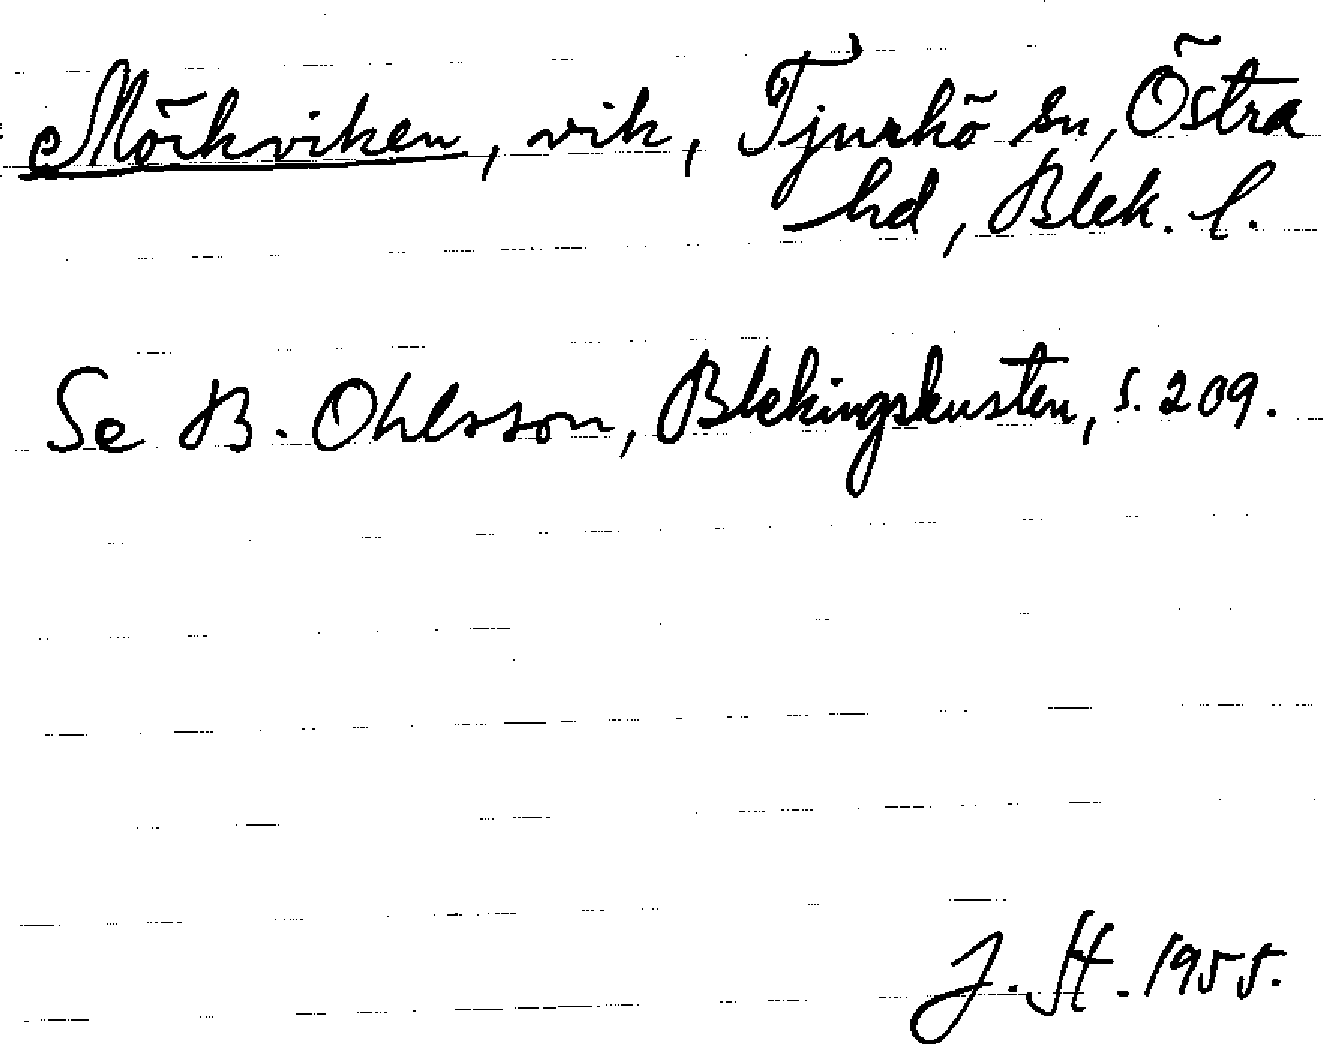 Mörkviken, vik, Tjurkö sn, Östra
hd, Blek. l.
Se B. Ohlsson, Blekingskusten, s. 209.
J. H. 1955.